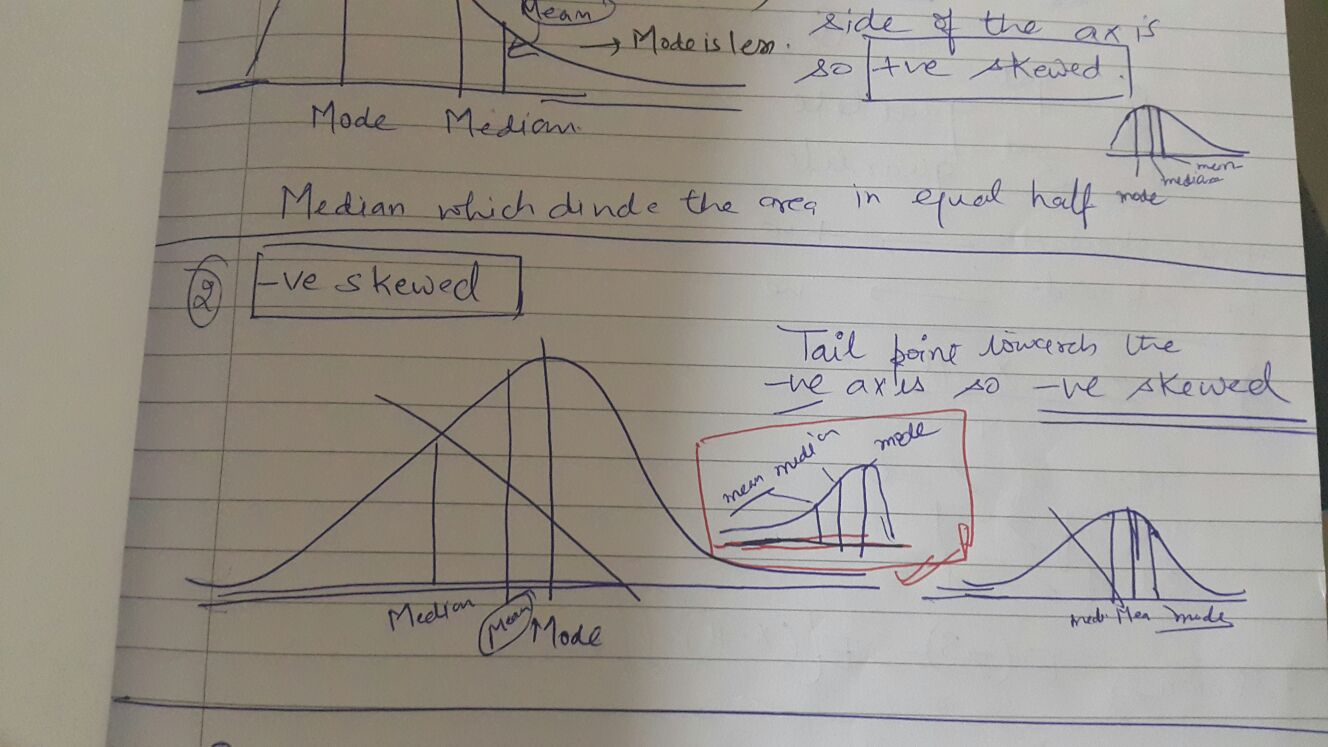 Mean
→ Mode is less.
side of the axis
so +ve skewed.
Mode Median.
mean
median
mode
Median which divide the area in equal half
② -ve skewed
Tail point towards the
-ve axis so -ve skewed
mean median mode
Median Mean Mode
medi Mea mode